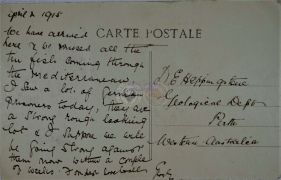 April 2 1915
CARTE POSTALE
We have arrived
here & missed all the
coming through
the Mediterranean
I saw a lot of German
prisoners today, they are
a strong rough looking
lot & I suppose we will
be going strong against
them now within a couple
of weeks.
Geological Dept
Perth
Western Australia